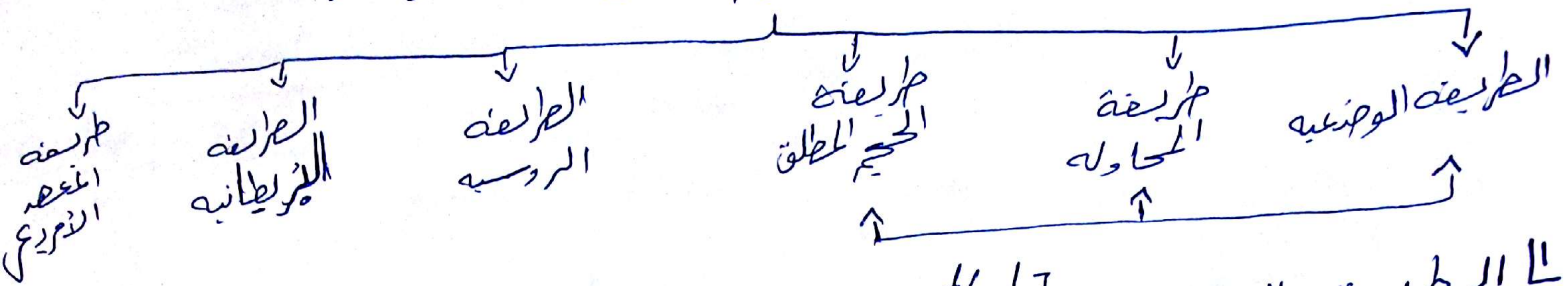 الطريقة الوضعيه
طريقة
المحاوله
طريقة
الحجم المطلق
الطريقه
الروسيه
الطريقه
البريطانيه
طريقه
المعهد
الأمريكي
الطريقة